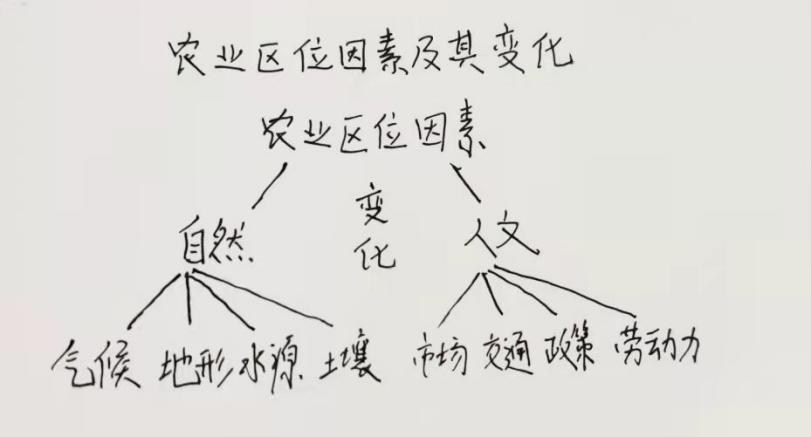 农业区位因素及其变化
农业区位因素
自然 变化 人文
气候 地形 水源 土壤 市场 交通 政策 劳动力